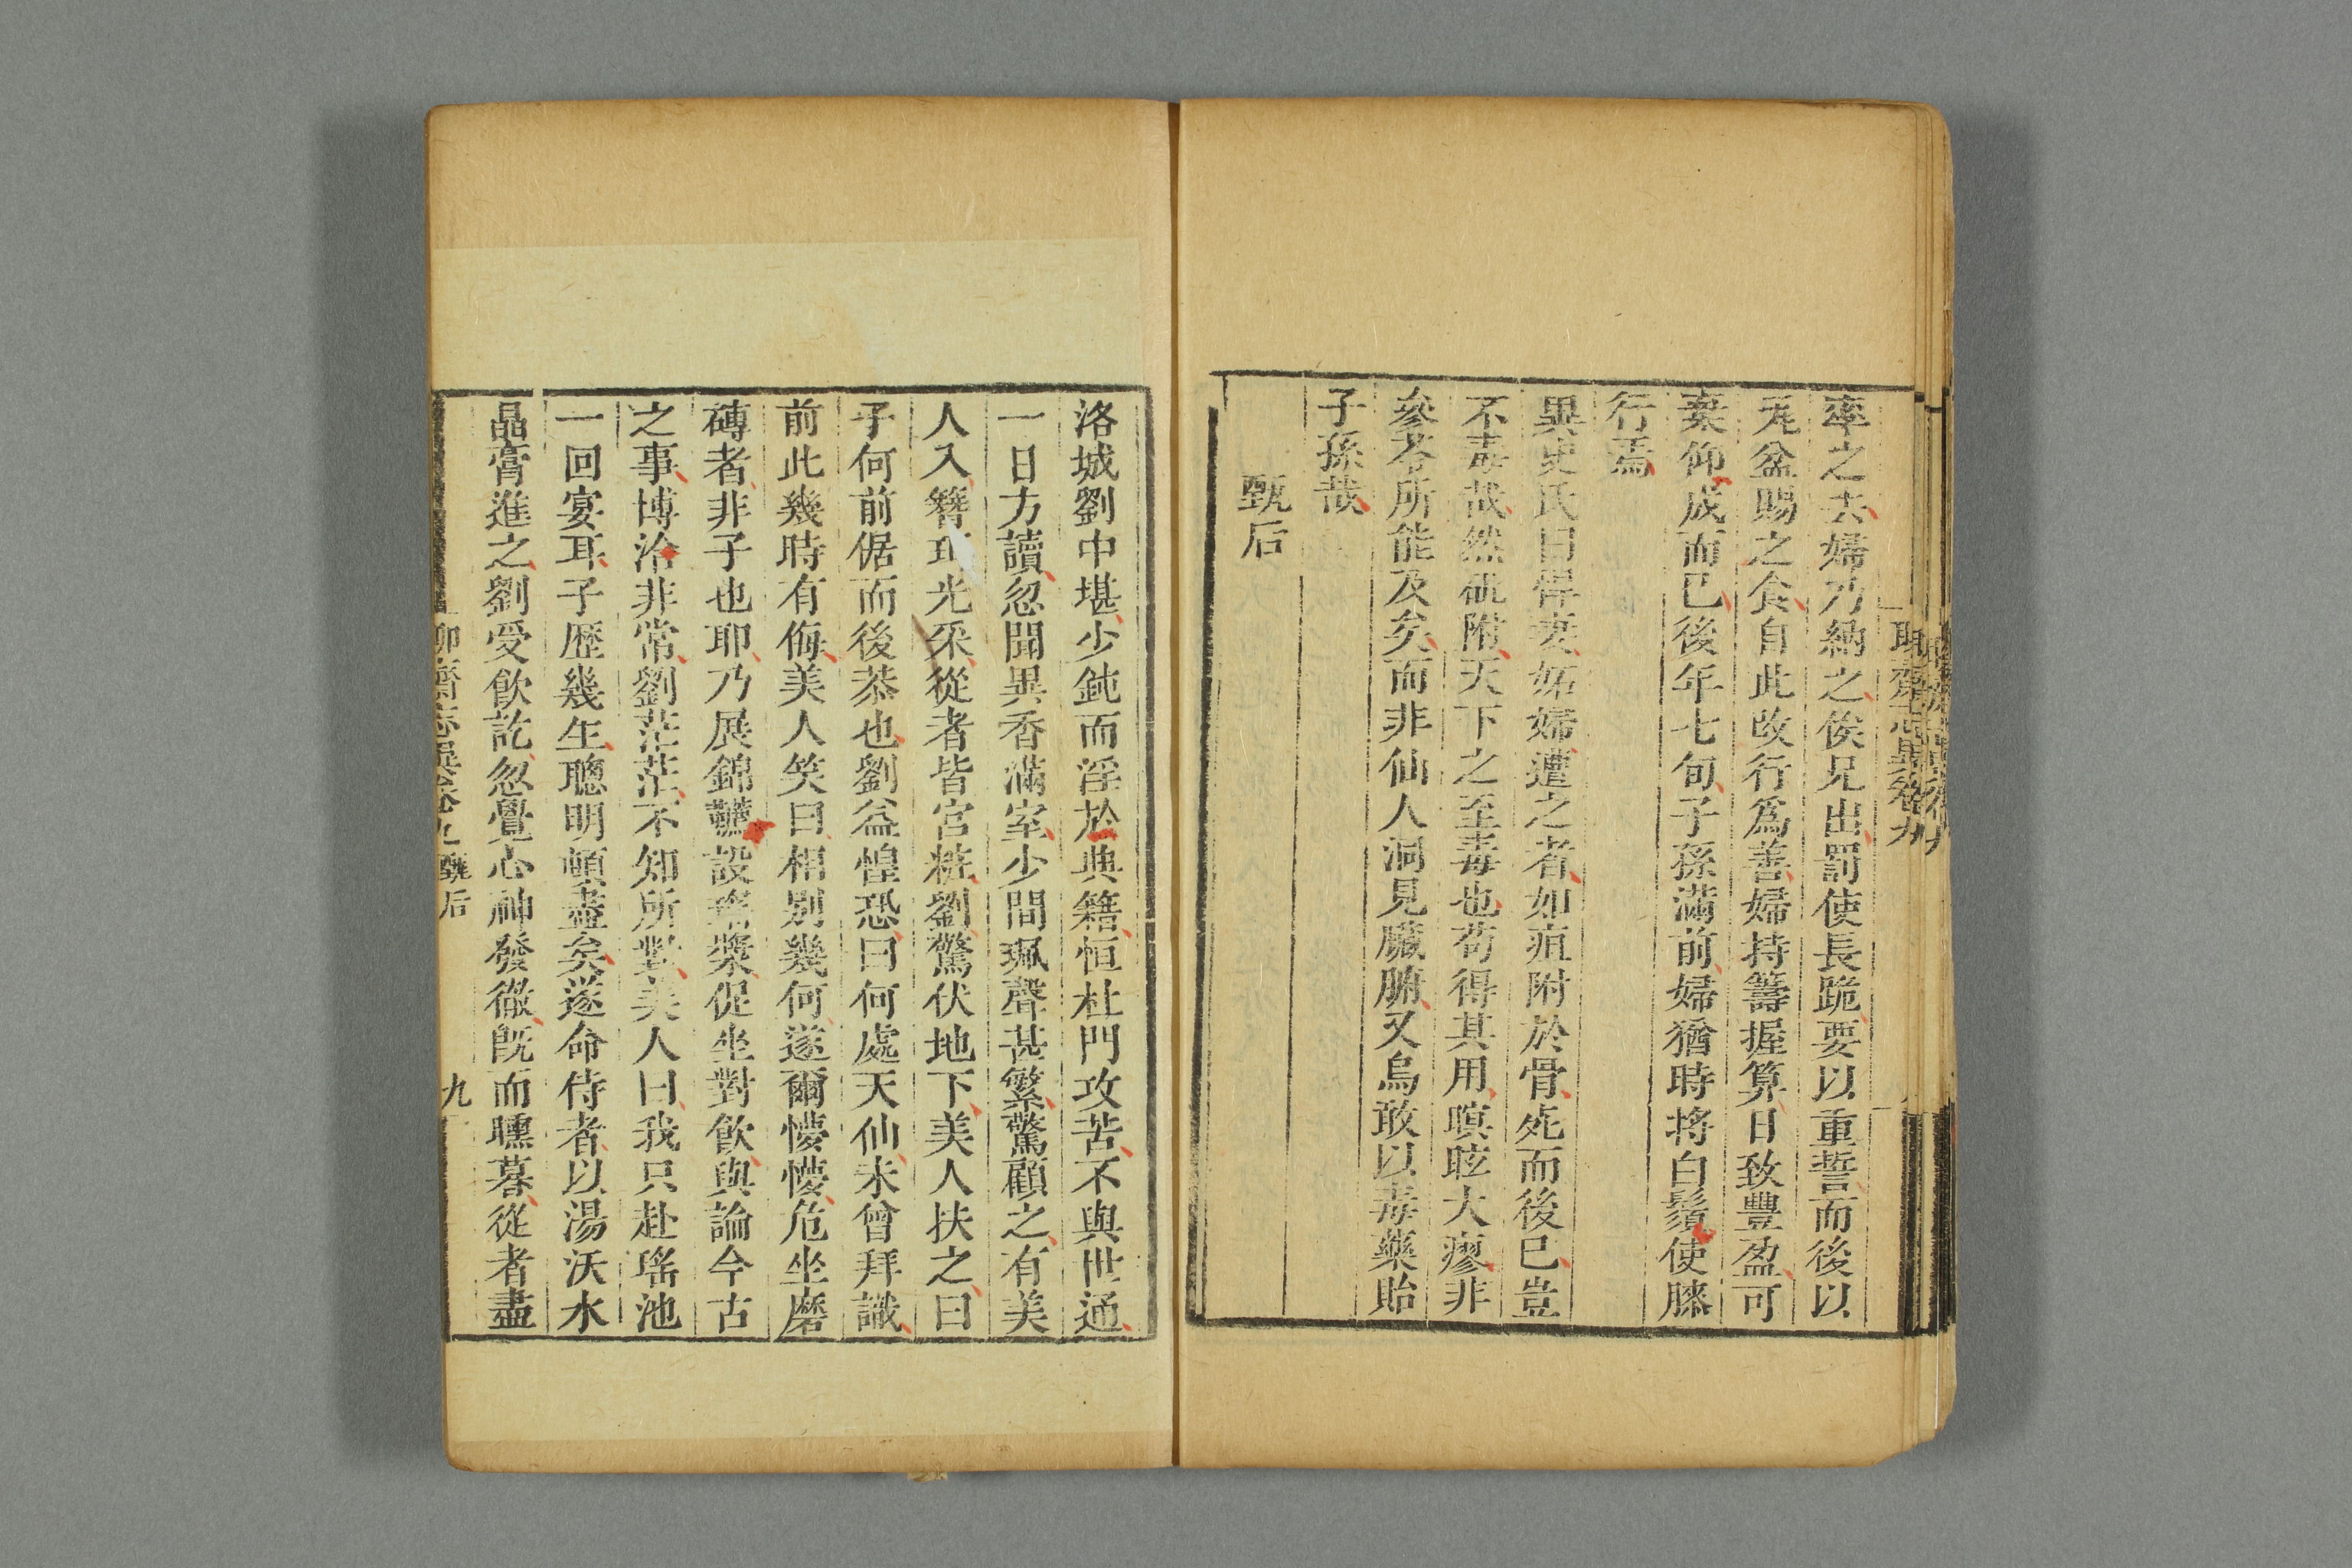 聊齋志異卷九
率之去婦乃納之俟兄出罰使長跪要以重誓而後以
瓦盆賜之食自此改行爲善婦持籌握算日致豐盈可
棄仰成而已後年七旬子孫滿前婦猶時捋白鬚使膝
行焉
異史氏曰悍妻妬婦遭之者如疽附於骨死而後已豈
不毒哉然砒附天下之至毒也苟得其用瞑眩大瘳非
參苓所能及矣而非仙人洞見臟腑又烏敢以毒藥貽
子孫哉
甄后
洛城劉中堪少鈍而淫於典籍恒杜門攻苦不與世通
一日方讀忽聞異香滿室少間珮聲甚繁驚顧之有美
人入簪珥光采從者皆宮粧劉驚伏地下美人扶之曰
子何前倨而後恭也劉益惶恐曰何處天仙未曾拜識
前此幾時有侮美人笑曰相別幾何遂爾懵懵危坐磨
磚者非子也耶乃展錦薦設瑤漿促坐對飲與論今古
之事博洽非常劉茫茫不知所對美人曰我只赴瑤池
一回宴耳子歷幾生聰明頓盡矣遂命侍者以湯沃水
晶膏進之劉受飲訖忽覺心神發徹旣而曛暮從者盡
聊齋志異卷九 甄后 九